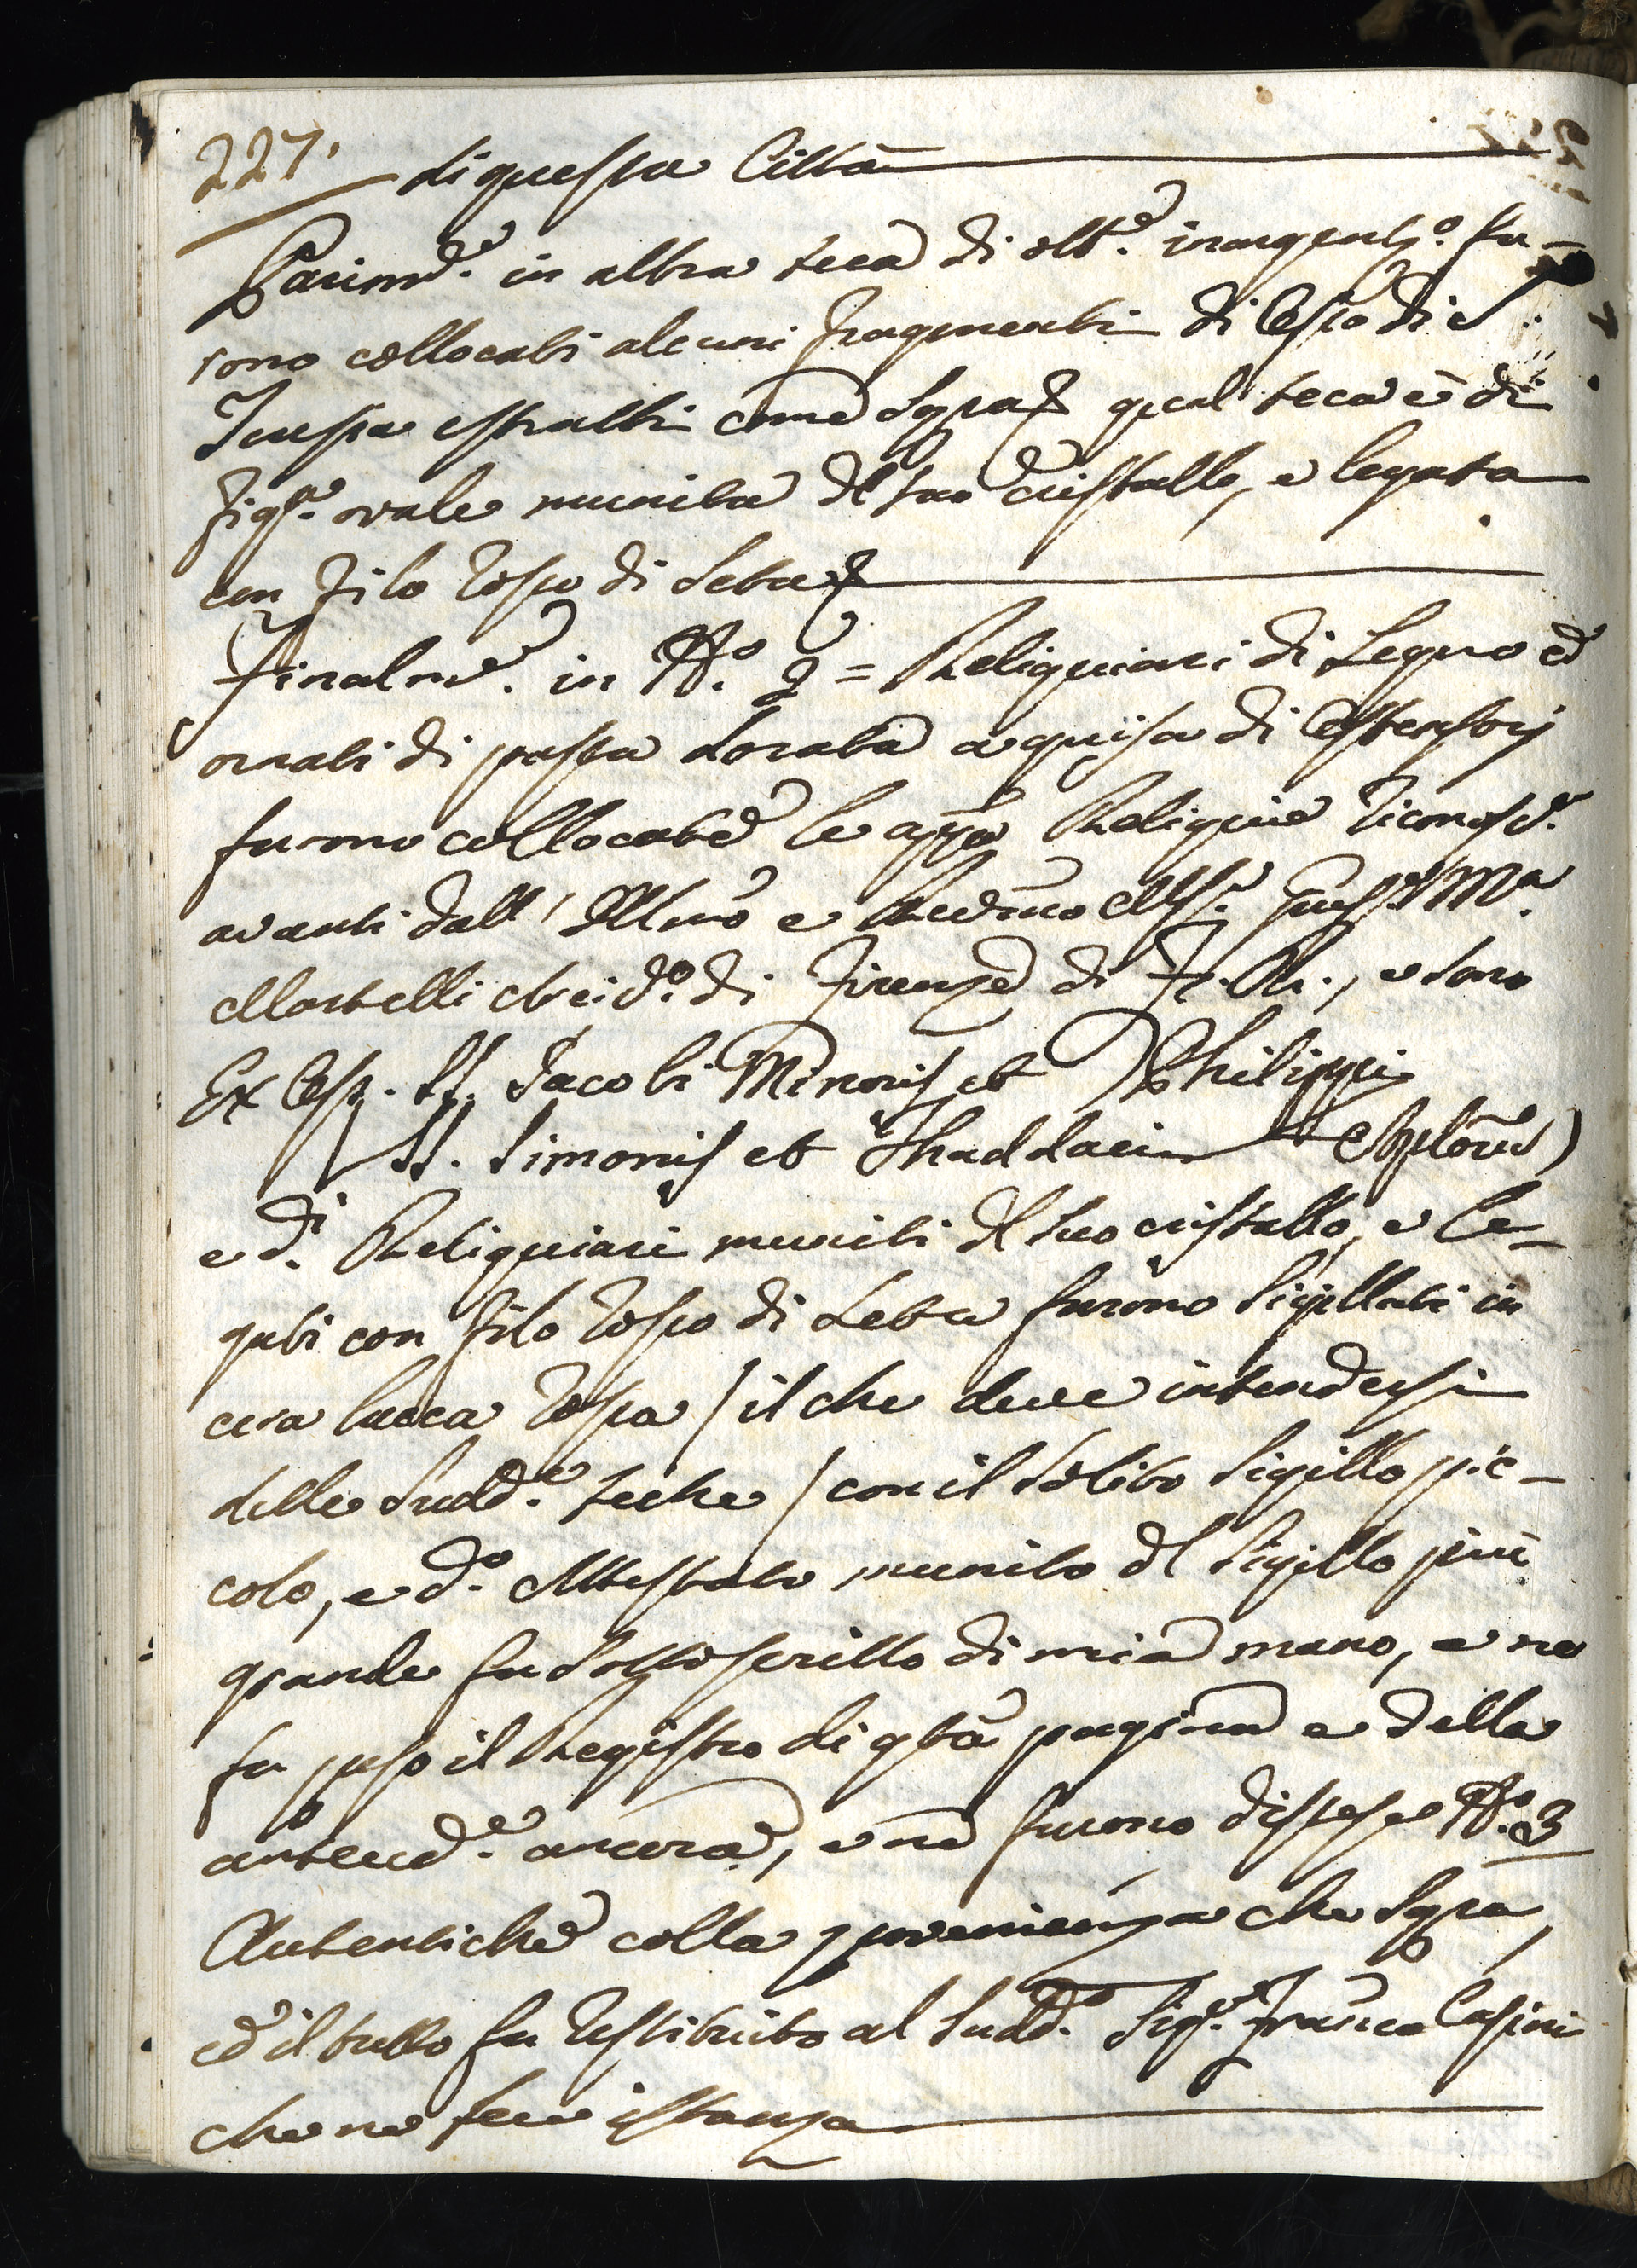 227. di questa Città
Parimẽ. in altra teca di ott.e inargent.o fu-
rono collocati alcuni fragmenti di Ossa di S.
estratti come Sopra, qual teca è di
fig.a ovale munita del suo cristallo, e legata
con filo rosso di Seta
Finalm.e in N.o 2 = Reliquiari di Legno ed
ornati di pasta dorata a guisa di Ostensorj
furono collocate le app.e Reliquie riconosc.e
avanti dall' Illmo e Redmo Msr.
Martelli Arciv.o di Firenze di Fe. Me., e sono
Ex Oss. SS. Jacobi Minoris et Philippi
SS. Simonis et Thaddaei Aplorũ)
e d.i Reliquiari muniti del suo cristallo, e le-
gati con filo rosso di Seta furono Sigillati in
cera lacca rossa / il che deve intendersi
delle Sudd.e teche / con il Solito Sigillo pic-
colo, e d.o Attestato munito del Sigillo più
grande fu Sottoscritto di mia mano, e ne
fu preso il Registro di qstã pagina e della
anteced.e ancora, e ne furono dispese N.o 3
Autentiche colla provenienza che Sopra,
ed il tutto fu restituito al Sudd.o Sig.e Franco Casini
che ne fece istanza